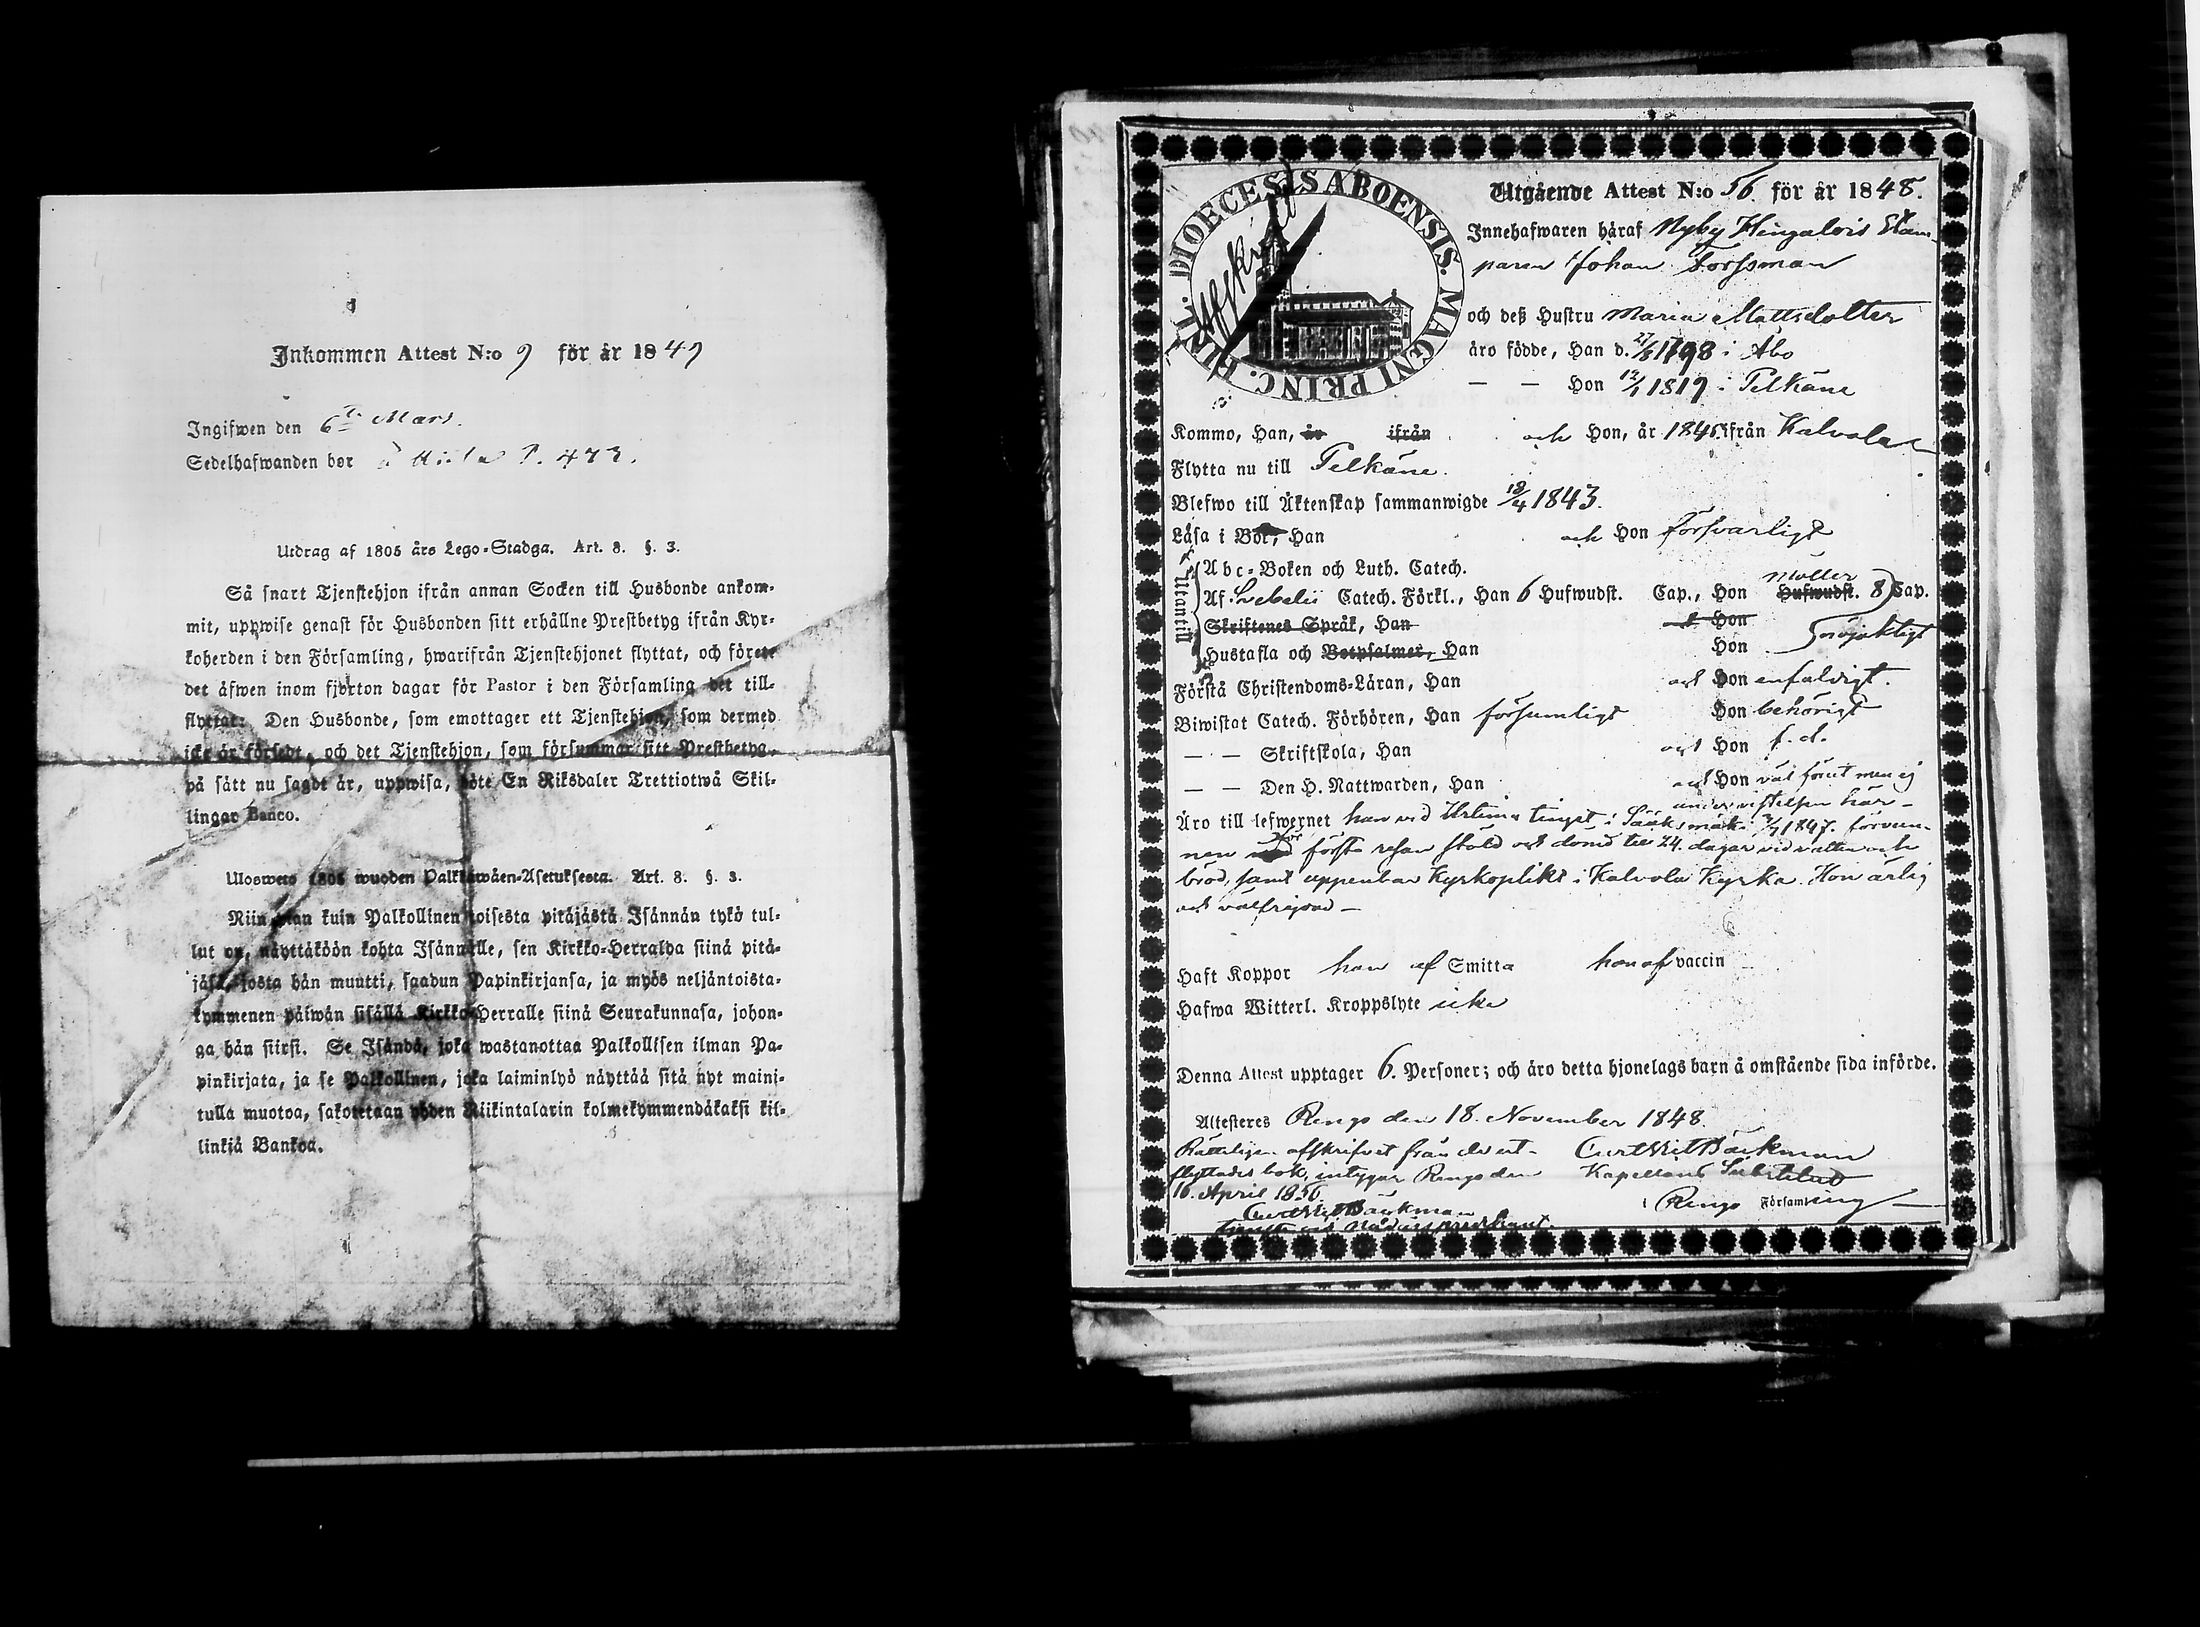 Inkommen Attest N:o 9 för år 1849
Ingifwen den 6te Mars.
Sedelhafwanden bor å P. 473.
Utdrag af 1805 års Lego-Stadga. Art. 8. §. 3.
Så snart Tjenstehjon ifrån annan Socken till Husbonde ankom-
mit, uppwise genast för Husbonden sitt erhållne Prestbetyg ifrån Kyr-
koherden i den Församling, hwarifrån Tjenstehjonet flyttat, och förete
det äfwen inom fjorton dagar för Pastor i den Församling det till-
flyttat: Den Husbonde, som emottager ett Tjenstehjon, som dermed
icke är försedt, och det Tjenstehjon, som försummar sitt Prestbetyg,
på sätt nu sagdt är, uppwisa, böte En Riksdaler Trettiotwå Skil-
lingar Banco.
Ulosweto 1805 wuoden Palkkawäen-Asetuksesta. Art. 8. §. 3.
Niin pian kuin Palkollinen toisesta pitäjästä Isännän tykö tul-
lut on, näyttäköön kohta Isännälle, sen Kirkko-Herralda siinä pitä-
jäsä, josta hän muutti, saadun Papinkirjansa, ja myös neljäntoista-
kymmenen päiwän sisällä Kirkko-Herralle siinä Seurakunnasa, johon-
ga hän siirsi. Se Isändä, joka wastanottaa Palkollisen ilman Pa-
pinkirjata, ja se Palkollinen, joka laiminlyö näyttää sitä nyt maini-
tulla muotoa, sakotetaan yhden Riikintalarin kolmekymmendäkaksi kil-
linkiä Bankoa.
DIOECESIS ABOENSIS. MAGNI PRINC. FINL.
Afskrift
Utgående Attest N:o 56. för år 1848.
Innehafwaren häraf Nyby Hengalois Stam-
paren Johan Forssman
och deß Hustru Maria Mattsdotter
äro födde, Han d. 27/8 1798 i Åbo
— — Hon 12/1 1819 i Pelkäne
Kommo, Han, år ifrån och Hon, år 1846 ifrån Kalvola
Flytta nu till Pelkäne.
Blefwo till Äktenskap sammanwigde 18/4 1843.
Läsa i Bok, Han och Hon försvarligt
Utantill
Abc-Boken och Luth. Catech.
Af Sebelii Catech. Förkl., Han 6 Hufwudst. Cap., Hon Möller Hufwudst. 8 Cap.
Skriftenes Språk, Han och Hon
Hustafla och Botpsalmer, Han Hon osvajaktigt
Förstå Christendoms-Läran, Han och Hon enfaldigt.
Biwistat Catech. Förhören, Han försumligt Hon behörigt
— — Skriftskola, Han och Hon f. d.
— — Den H. Nattwarden, Han och Hon väl förut men ej
under vistelsen här—
Äro till lefwernet han vid Urtima tinget i Sääksmäki 7/7 1847. förvun-
nen för första resan stöld och dömd till 24. dagar vid vatten och
bröd, samt uppenbar Kyrkoplikt i Kalvola Kyrka. Hon ärlig
och välfrejdad —
Haft Koppor han af Smitta hon af vaccin
Hafwa Witterl. Kroppslyte icke
Denna Attest upptager 6. Personer; och äro detta hjonelags barn å omstående sida införde.
Attesteres Rengo den 18. November 1848.
Rätteligen afskrifvet från de ut-
flyttades bok, intygar Rengo den
16. April 1850.
Curt Wilt Bäckman
Curt Wilt Bäckman
Kapellans Substitut
i Rengo Församling